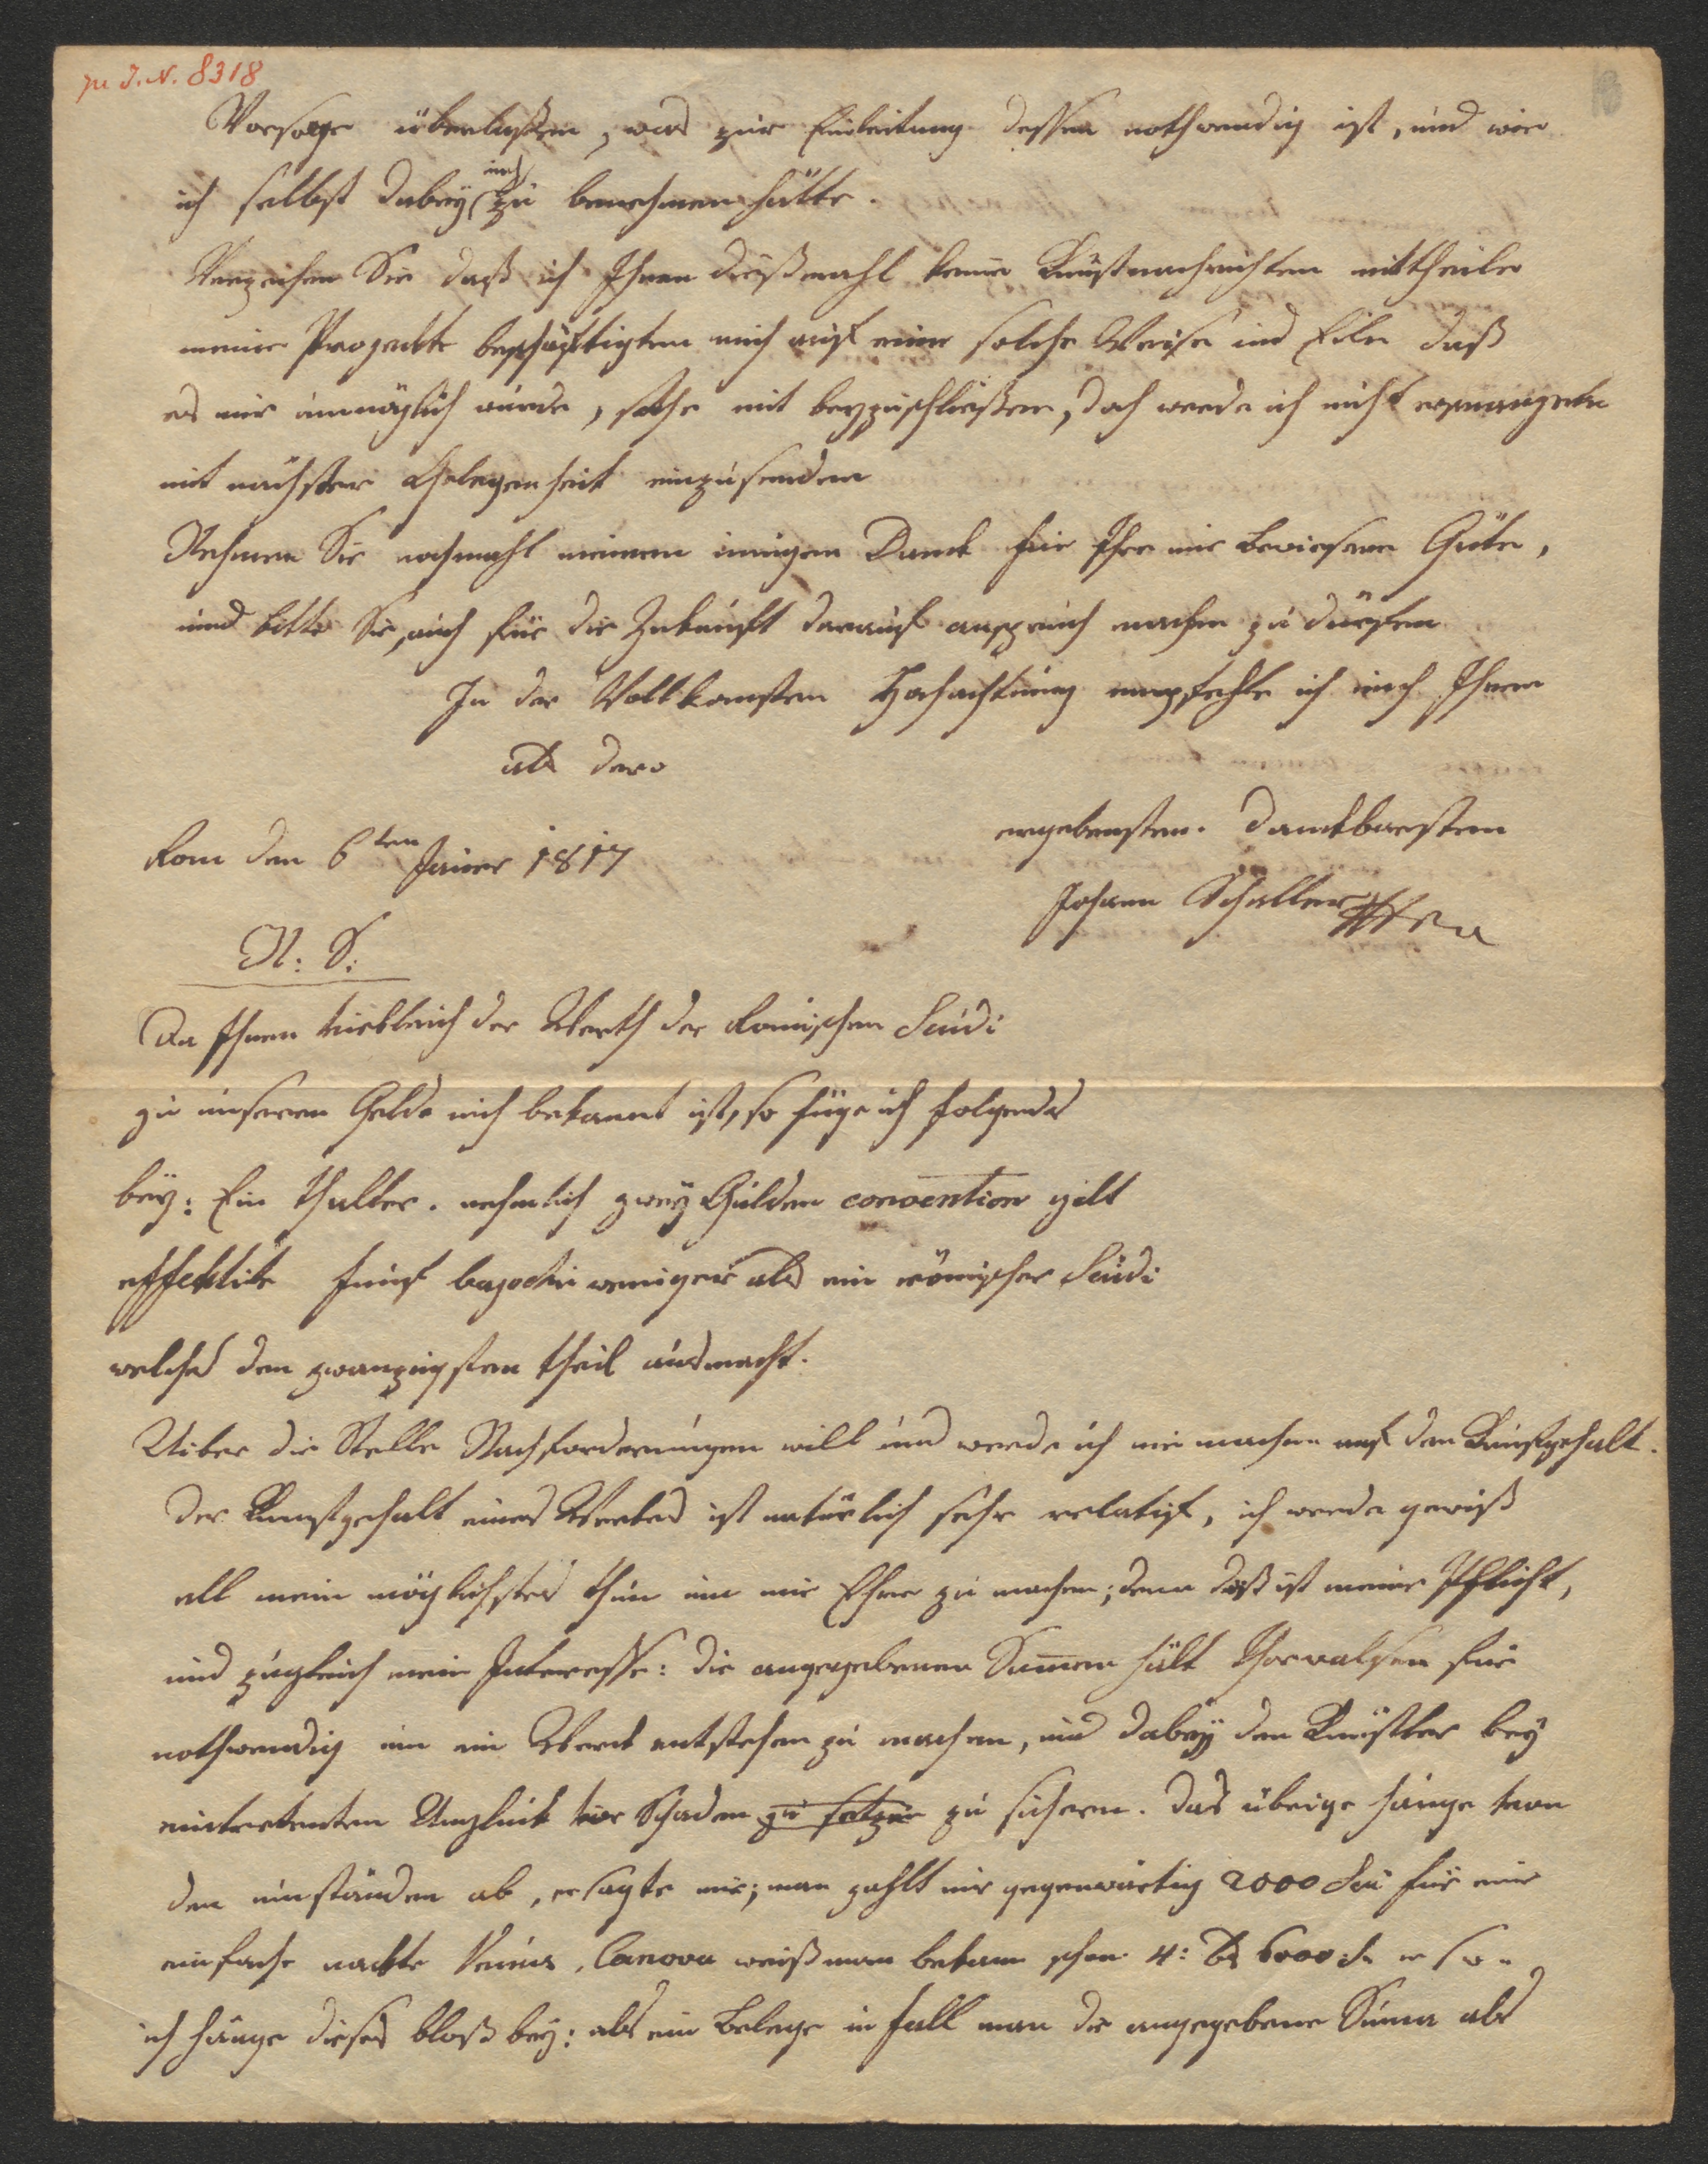 zu I.N. 8318
Vorsorge überlaßen, was zur Einleitung dessen nothwendig ist, und wie
ich selbst dabey mich zu benehmen hätte.
Verzeihen Sie daß ich Ihnen dießmahl keine Kunstnachrichten mittheile
meine Projeckte beschäftigten mich auf eine solche Weise und Eile daß
es mir unmöglich wurde, solche mit beyzuschließen, doch werde ich nicht ermangeln
mit nächster Gelegenheit einzusenden
Nehmen Sie nochmahl meinen innigen Danck für Ihre mir bewiesene Güte,
und bitte Sie, auch für die Zukunft darauf anspruch machen zu dürfen
In der Vollkomsten Hochachtung empfehle ich mich Ihnen
als dero
ergebensten. Danckbarsten
Rom den 6ten Jäner 1817
Johann Schaller
N: S:
Da Ihnen vielleich der Werth der Römischen Scudi
zu unseren Gelde nich bekannt ist, so füge ich folgendes
bey: Ein Thaller. nehmlich zwey Gulden convention gilt
effecktive fünf bajochi weniger als ein römischer Scudi
welches den zwanzigsten theil ausmacht.
Uiber die Stelle Nachforderungen will und werde ich nie machen auf den Kunstgehalt.
der Kunstgehalt eines Werkes ist natürlich sehr relatif, ich werde gewiß
all mein möglichstes thun um mir Ehre zu machen; denn daß ist meine Pflicht,
und zugleich mein Interesse: die angegebenen Sumen hält Thorwalsen für
nothwendig um ein Werck entstehen zu machen, und dabey den Künstler bey
eintretenten Unglück vor Schaden zu setzen zu sichern. das übrige hänge von
den umständen ab, er sagte mir; man zahlt mir gegenwärtig 2000 Scu für eine
einfache nackte Venus, Canova weiß man bekam schon 4: bis 6000 Sc
ich hänge dieses bloß bey: als ein Belege in fall man die angegebene Suma als